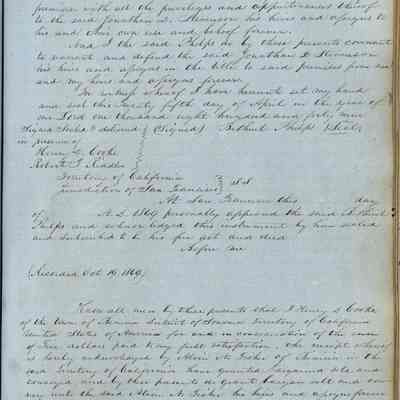 premises with all the priviledges and appurtenances thereof
to the said Jonathan D. Stevenson his heirs and assigns to
his and their own use and behoof forever.
And I the said Phelps do by these presents covenant
to warrant and defend the said Jonathan D Stevenson
his heirs and assigns in the title to said premises from me
and my heirs and assigns forever
In witness whereof I have hereunto set my hand
and seal this twenty fifth day of April in the year of
our Lord one thousand eight hundred and forty nine
Signed Sealed & delivered (Signed) Bethuel Phelps (Seal)
in presence of
Henry S. Cooke
Robert T. Ridley
Territory of California
jurisdiction of San Francisco } S.S.
At San Francisco this day
of A.D. 1849 personally appeared the said Bethuel
Phelps and acknowledged this instrument by him sealed
and subscribed to be his free act and deed
Before me
(Recorded Oct 19, 1849)
Know all men by these presents that I Henry S Cooke
of the town of District of Sonoma Territory of California
United States of America for and in consideration of the sum
of Five dollars paid to my full satisfaction, the receipt whereof
is hereby acknowledged by of in the
said Territory of California have granted bargained sold and
conveyed, and by these presents do grant bargain sell and con-
vey unto the said his heirs and assigns forever